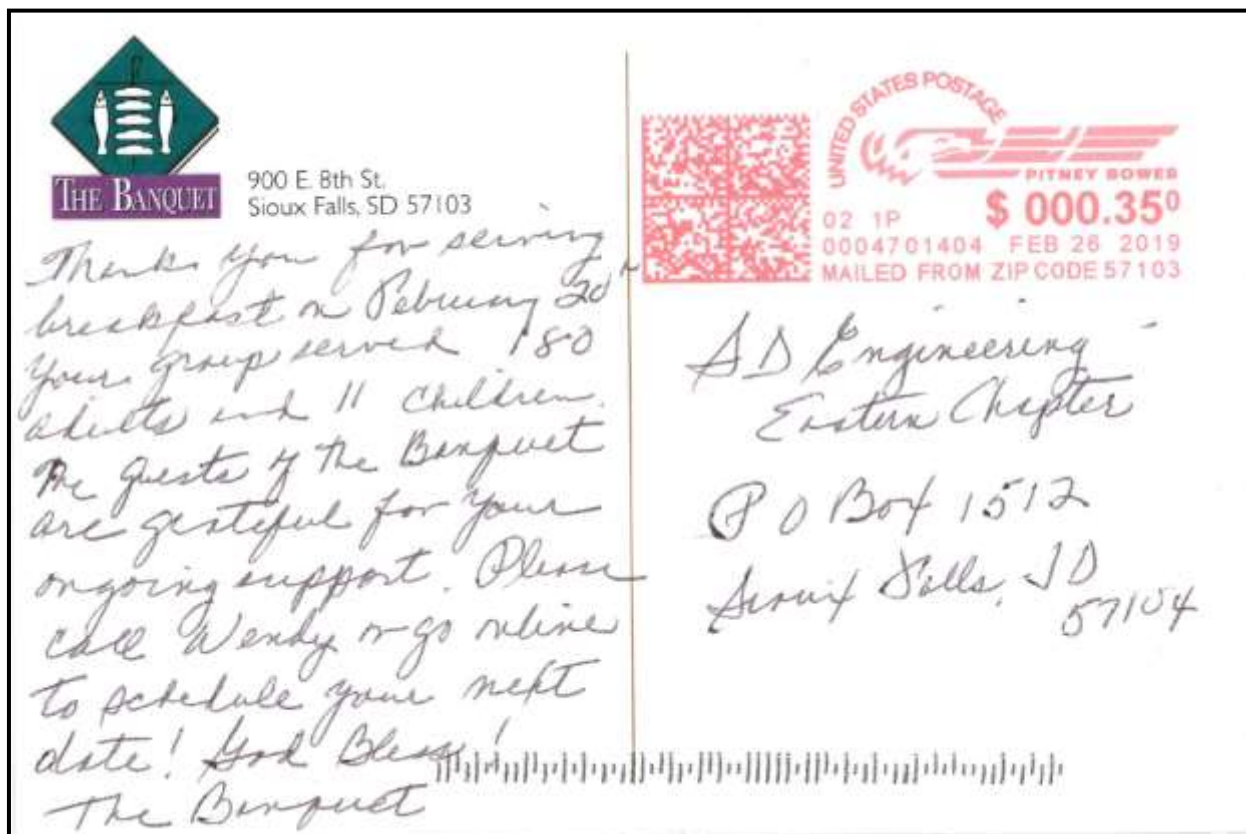 THE BANQUET
900 E. 8th St.
Sioux Falls, SD 57103
Thank you for serving
breakfast on February 20
Your group served 180
adults and 11 children.
The guests of the Banquet
are grateful for your
ongoing support. Please
call Wendy or go online
to schedule your next
date! God Bless!
The Banquet
UNITED STATES POSTAGE
PITNEY BOWES
$ 000.35⁰
02 1P
0004701404 FEB 26 2019
MAILED FROM ZIP CODE 57103
SD Engineering
Eastern Chapter
P O Box 1512
Sioux Falls, SD
57104